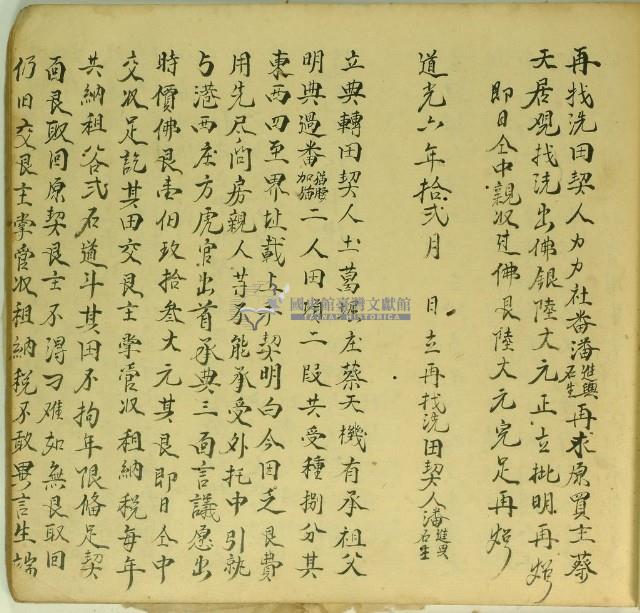 再找洗田契人力力社番潘進興石生再求原買主蔡
天居覌找洗出佛銀陸大元正立批明再炤
即日仝中親収过佛艮陸大元完足再炤
道光六年拾弍月　日立再找洗田契人潘進興石生
立典轉田契人土葛堀庄蔡天機有承祖父
明典過番加猫二人田項二段共受種捌分其
東西四至界址載上手契明白今因乏艮費
用先尽问房親人等不能承受外托中引就
与港西庄方虎官出首承典三面言議愿出
時價佛艮壹伯玖拾叁大元其艮即日仝中
交収足訖其田交艮主掌管収租納稅每年
共納租谷弍石道斗其田不拘年限俻足契
面艮取回原契艮主不得刁难如無艮取回
仍旧交艮主掌管収租納稅不敢異言生端
國史館臺灣文獻館
TAIWAN HISTORICA